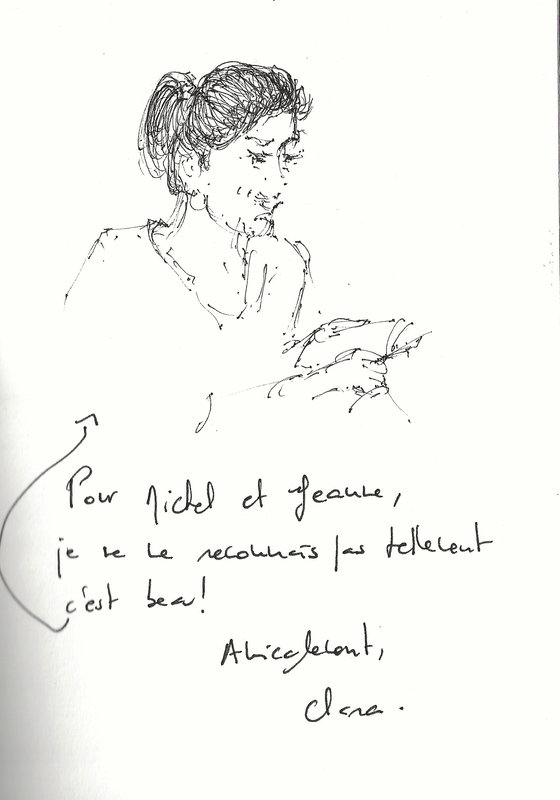 Pour Michel et Jeanne,
je ne me reconnais pas tellement
c'est beau!
Amicalement,
Clara.